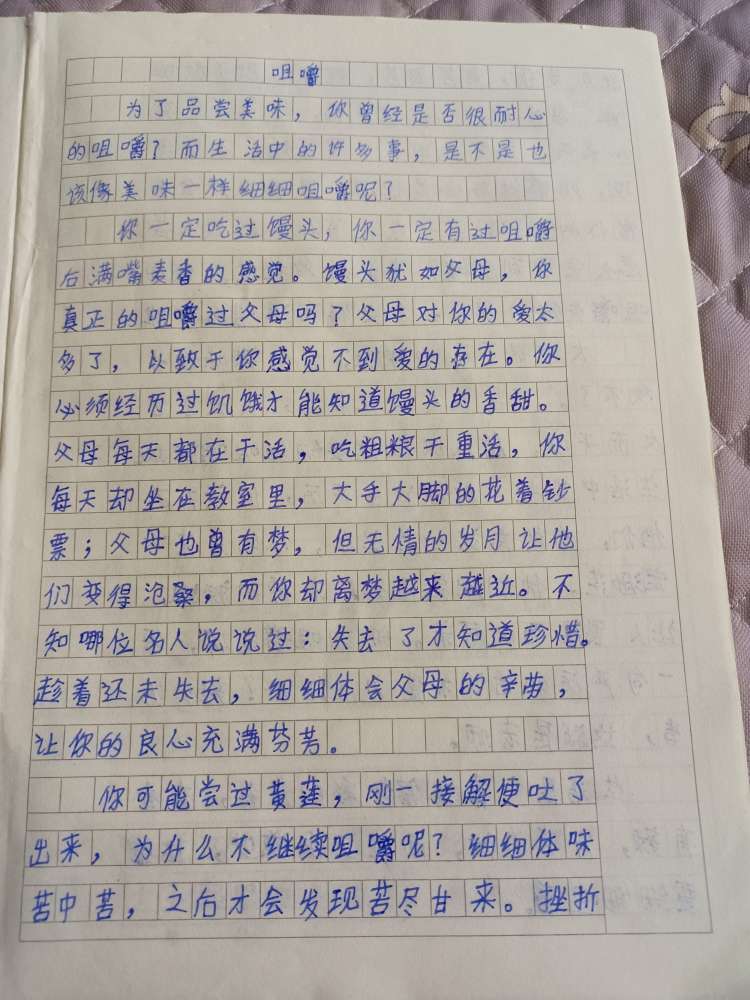 咀嚼
为了品尝美味，你曾经是否很耐心
的咀嚼？而生活中的许多事，是不是也
该像美味一样细细咀嚼呢？
你一定吃过馒头，你一定有过咀嚼
后满嘴麦香的感觉。馒头犹如父母，你
真正的咀嚼过父母吗？父母对你的爱太
多了，以致于你感觉不到爱的存在。你
必须经历过饥饿才能知道馒头的香甜。
父母每天都在干活，吃粗粮干重活，你
每天却坐在教室里，大手大脚的花着钞
票；父母也曾有梦，但无情的岁月让他
们变得沧桑，而你却离梦越来越近。不
知哪位名人说说过：失去了才知道珍惜。
趁着还未失去，细细体会父母的辛劳，
让你的良心充满芬芳。
你可能尝过黄莲，刚一接解便吐了
出来，为什么不继续咀嚼呢？细细体味
苦中苦，之后才会发现苦尽甘来。挫折